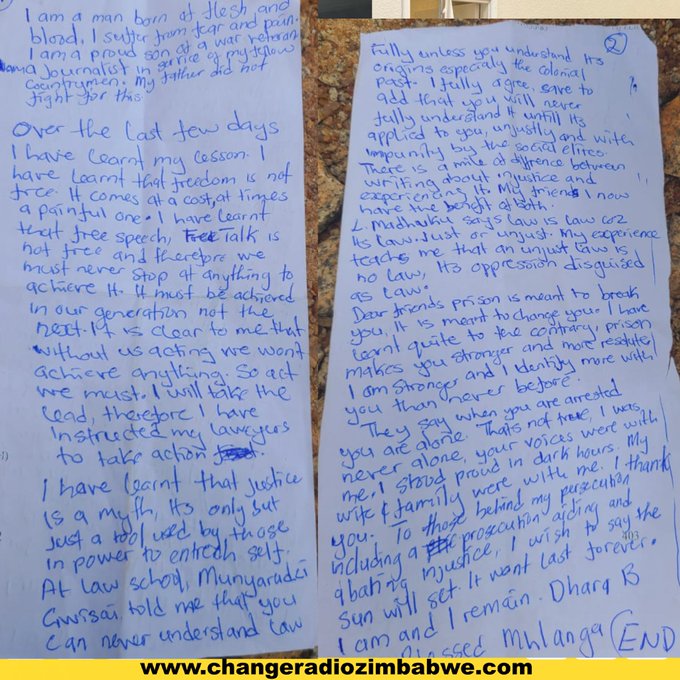 I am a man born of flesh and
blood, I suffer from fear and pain.
I am a proud son of a war veteran
am a Journalist in service of my fellow
Countrymen. My father did not
fight for this
Over the last few days
I have learnt my lesson. I
have learnt that freedom is not
free. It comes at a cost, at times
a painful one. I have learnt
that free speech, Free Talk is
not free and therefore we
must never stop at anything to
achieve it. It must be achieved
in our generation not the
next. It is clear to me that
without us acting we wont
achieve anything. So act
we must. I will take the
lead, therefore I have
instructed my lawyers
to take action
I have learnt that justice
is a myth, its only but
just a tool used by those
in power to entrech self.
At law school, Munyaradzi
Gwisai told me that you
can never understand law
2
fully unless you understand its
origins especialy the colonial
past. I fully agree, save to
add that you will never
fully understand it untill its
applied to you, unjustly and with
impunity by the social elites.
There is a mile of diffrence between
writing about injustice and
experiencing it. My friends I now
have the benefit of both.
L. Madhuku says law is law coz
its law. Just or unjust. My experience
teachs me that an unjust law is
no law, its oppression disguised
as law.
Dear friends prison is meant to break
you. It is meant to change you. I have
learnt quite to the contrary, prison
makes you stronger and more resolute,
I am stronger and I identify more with
you than never before.
They say when you are arrested
you are alone. Thats not true, I was
never alone, your voices were with
me. I stood proud in dark hours. My
wife & family were with me. I thank
you. To those behind my persecution
including a prosecution aiding and
abating injustice, I wish to say the
sun will set. It wont last forever.
I am and I remain. Dhara B
Blessed Mhlanga (END
www.changeradiozimbabwe.com